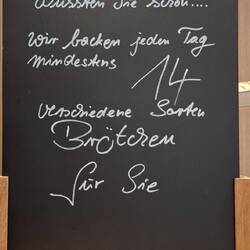 Wussten Sie schon....
Wir backen jeden Tag
mindestens
14
verschiedene Sorten
Brötchen
für Sie